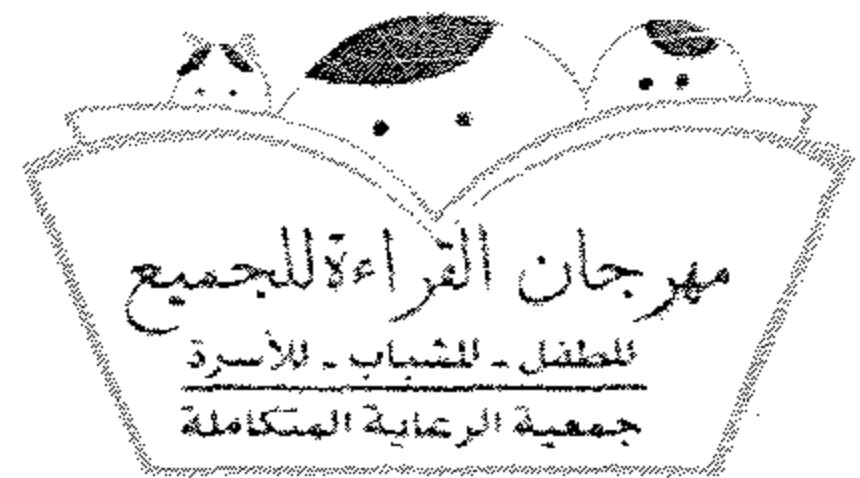 مهرجان القراءة للجميع
للطفل - للشباب - للأسرة
جمعية الرعاية المتكاملة